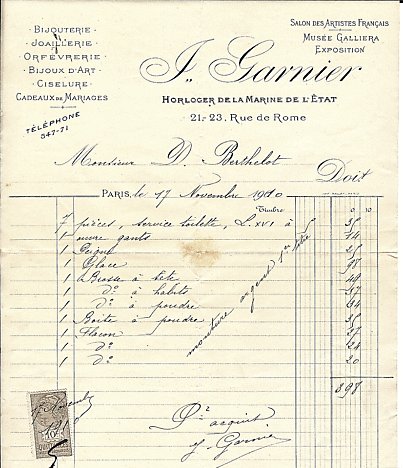 Bijouterie
Joaillerie
Orfèvrerie
Bijoux d'Art
Ciselure
Cadeaux de Mariages
Téléphone
347-71
Salon des Artistes Français
Musée Galliera
Exposition
J. Garnier
Horloger de la Marine de l'État
21-23, Rue de Rome
Monsieur D. Berthelot Doit
Paris, le 17 Novembre 1910
Timbre 0 10
7 pièces, service toilette, L. XVI à
1 ouvre gants 14
1 Peigne
1 Glace
1 Brosse à tête
1 dº à habits
1 dº à poudre
1 Boîte à poudre
1 Flacon
1 dº 24
1 dº 20
monture argent 1er titre
398
Pr acquit
J. Garnier
17 Novembre
10c